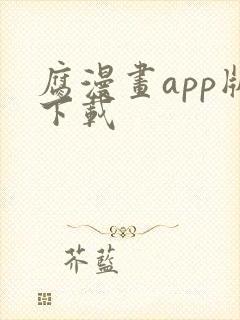 腐漫畫app版
下載
芥藍